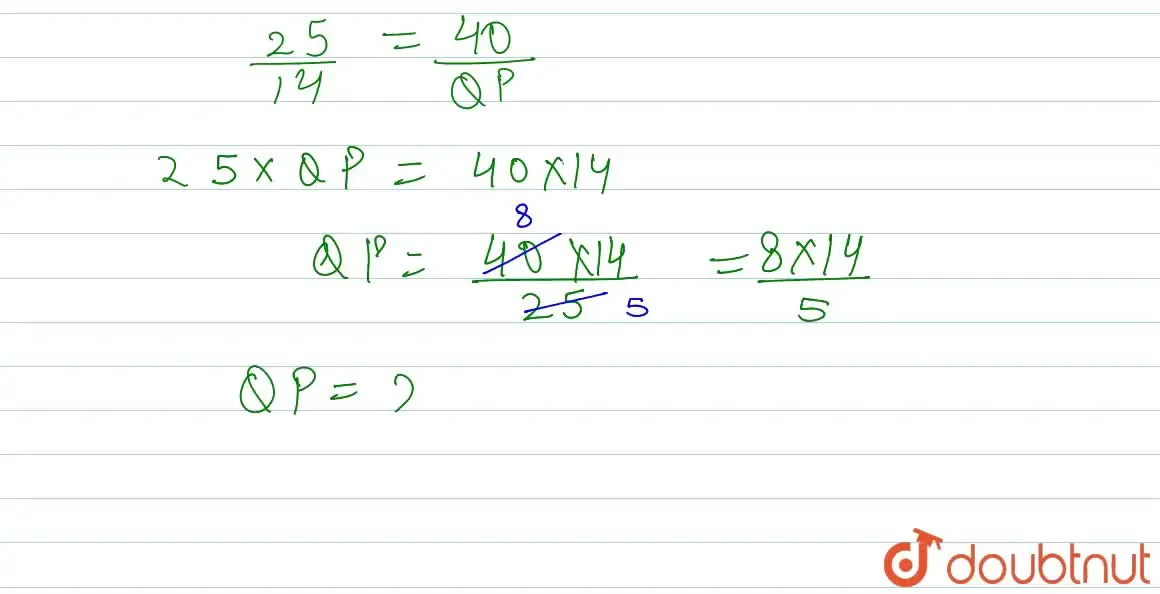 25/14 = 40/QP
25 × QP = 40 × 14
8
QP = 40 × 14 / 25 5 = 8 × 14 / 5
QP = 2
doubtnut